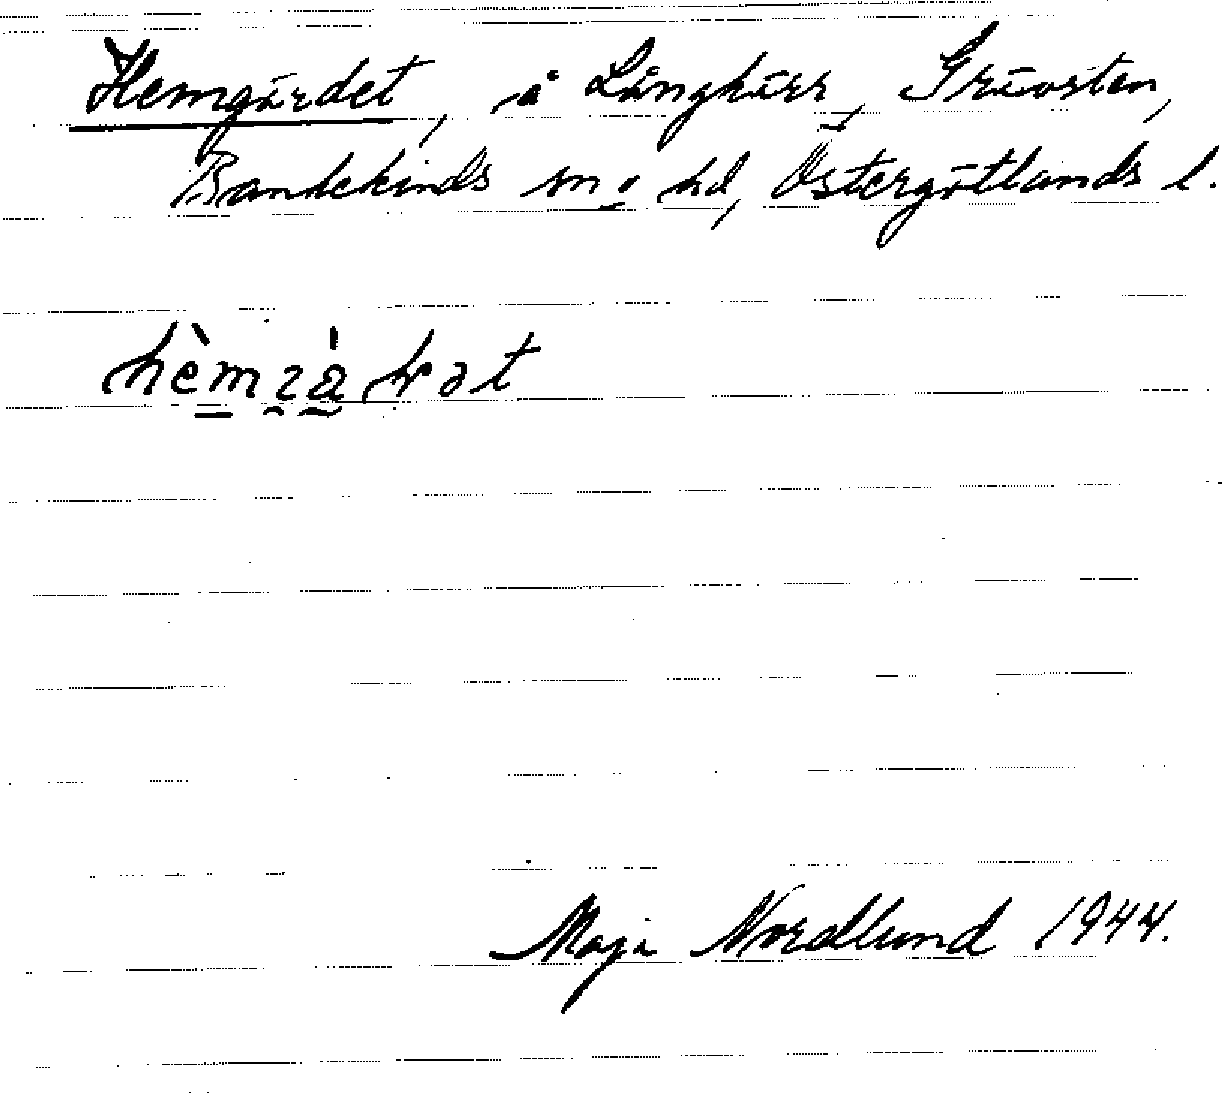 Hemgärdet, å Långkärr, Grävsten,
Bankekinds sn o hd, Östergötlands l.
Maja Nordlund 1944.